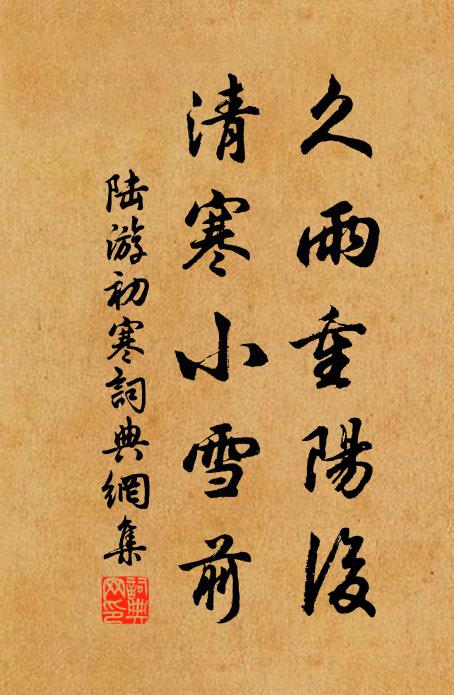 久雨重陽後
清寒小雪前
陆游初寒詞典網集
詞典网印